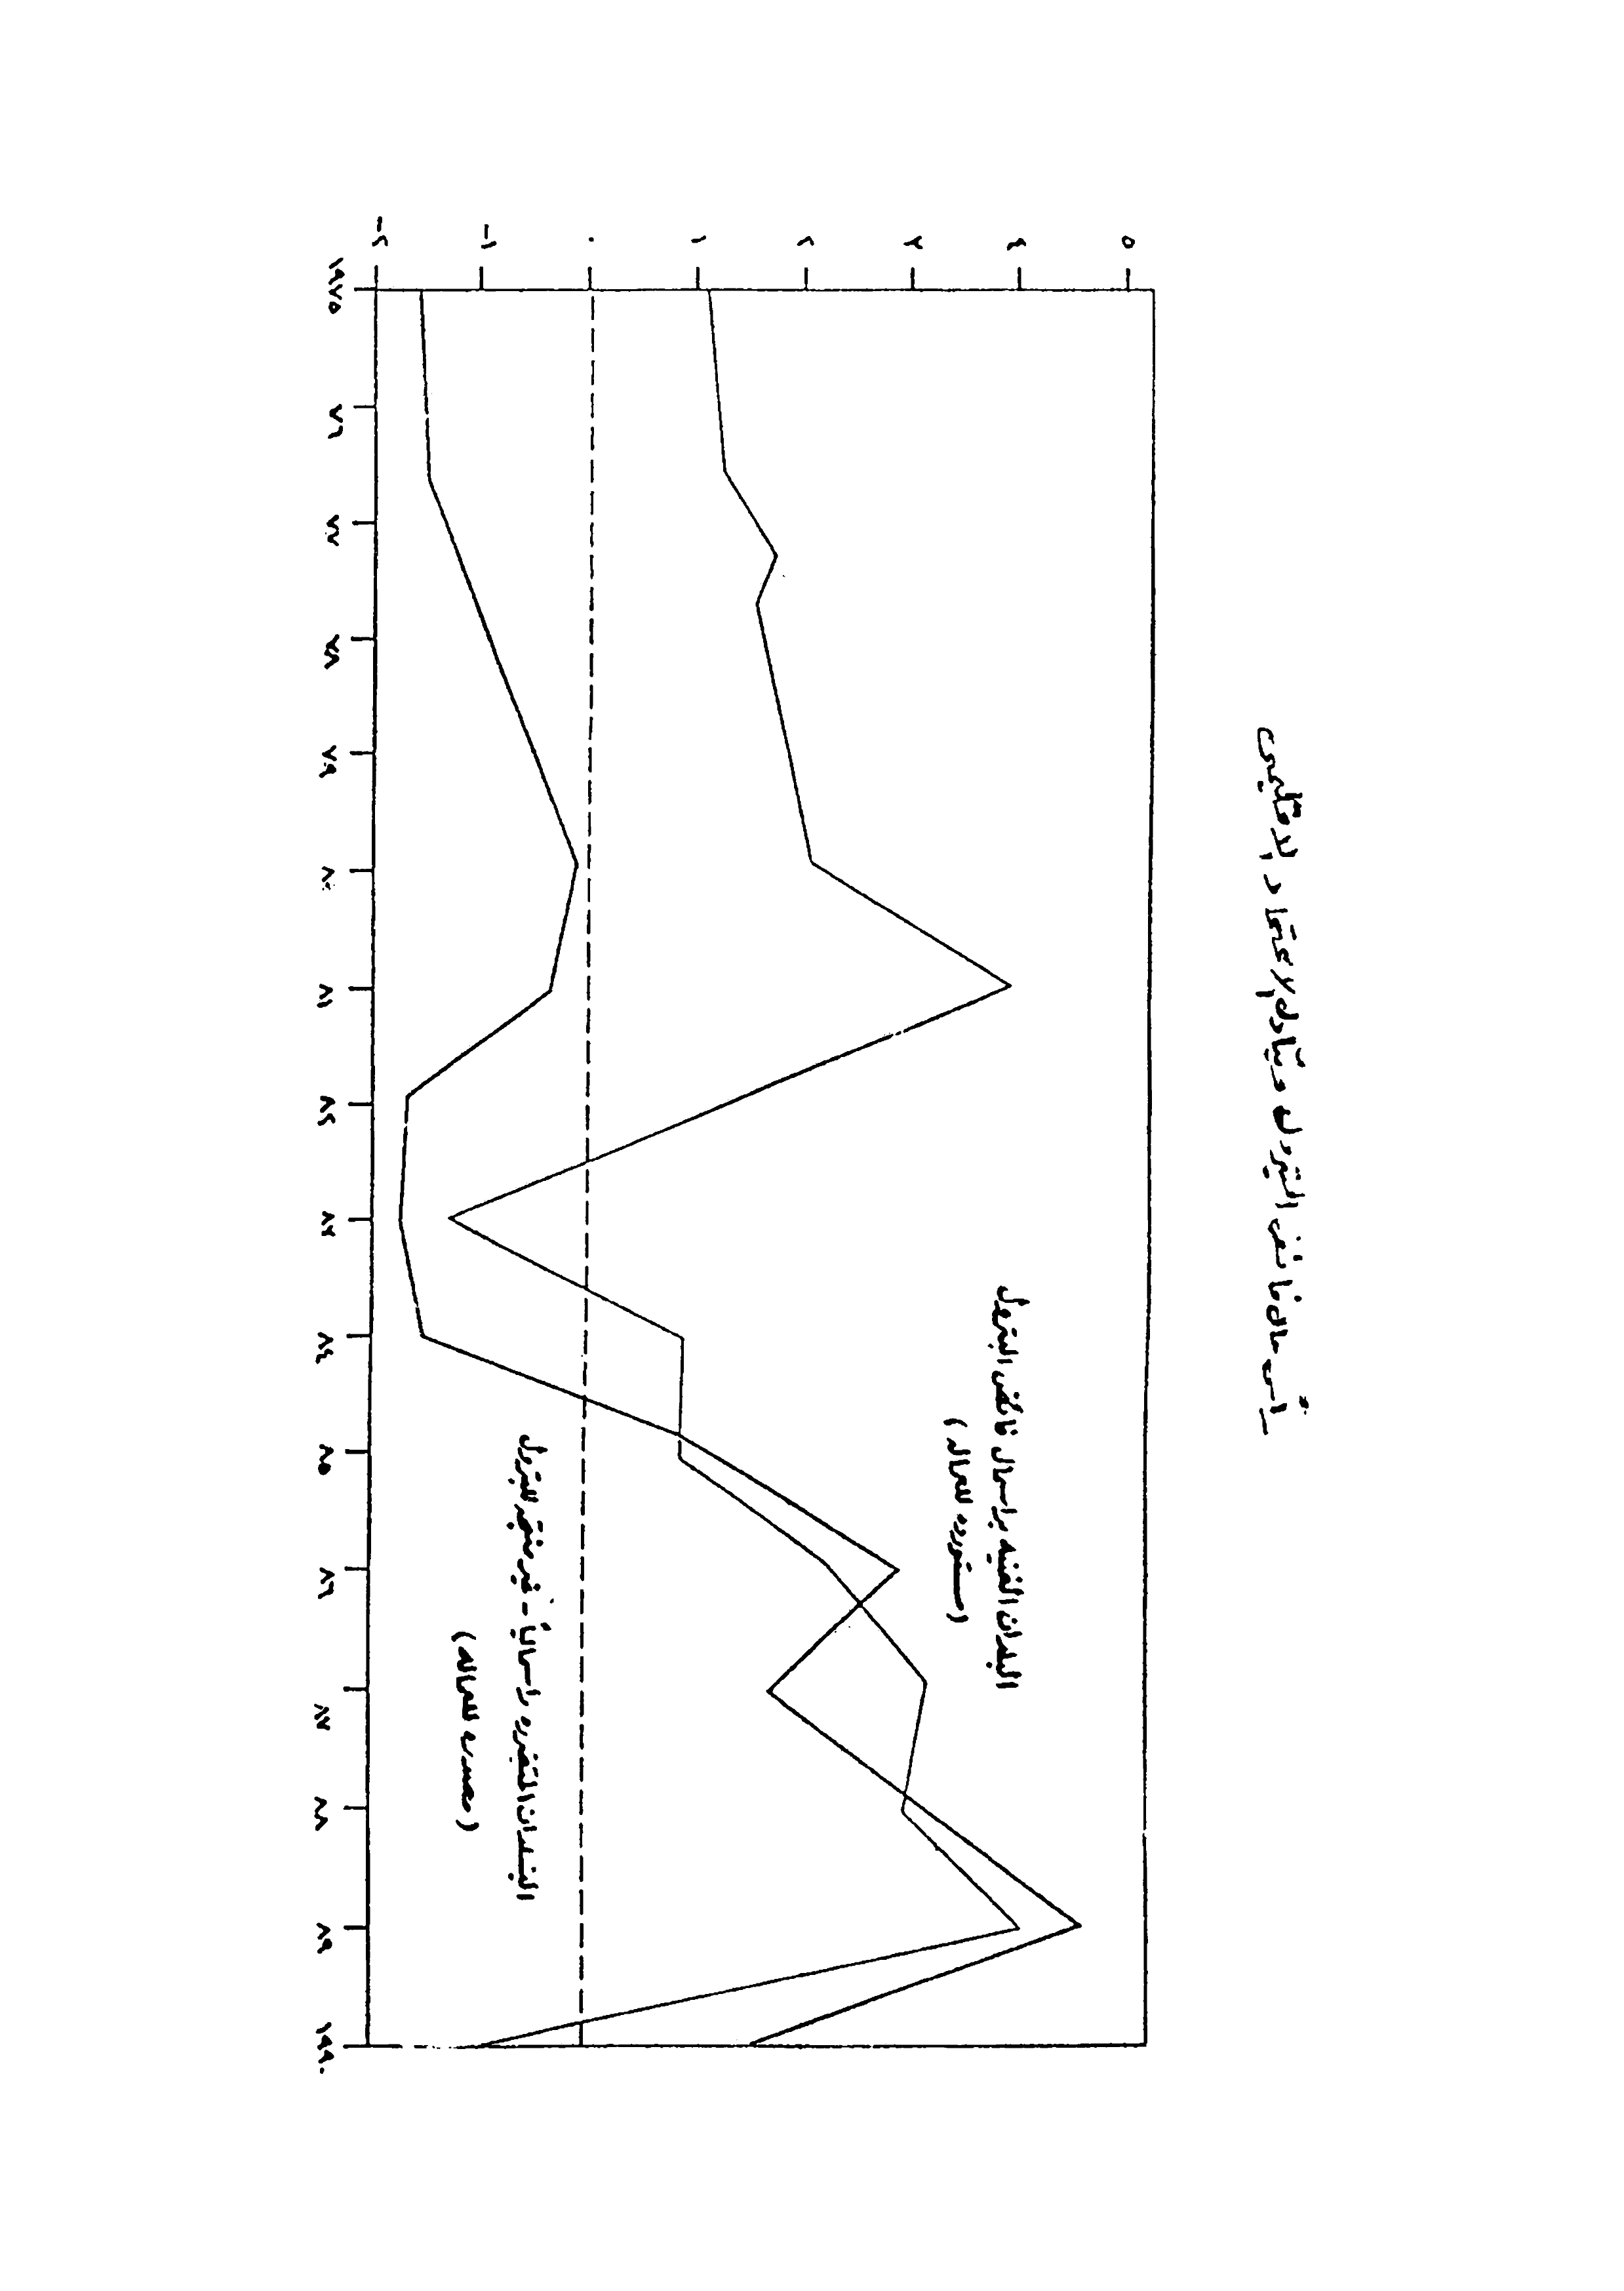 رأس مال فائض البترول وتبادل الاعتماد الإقليمى
٥
٤
٣
٢
١
٠
-١
-٢
البلدان الغنيه براسمال فائض البترول
(مستورده للعماله)
البلدان المتضرره راسمالياً - غير منتجه للبترول
(مصدره للعماله)
١٩٧٥
٧٦
٧٧
٧٨
٧٩
٨٠
٨١
٨٢
٨٣
٨٤
٨٥
٨٦
٨٧
٨٨
٨٩
١٩٩٠